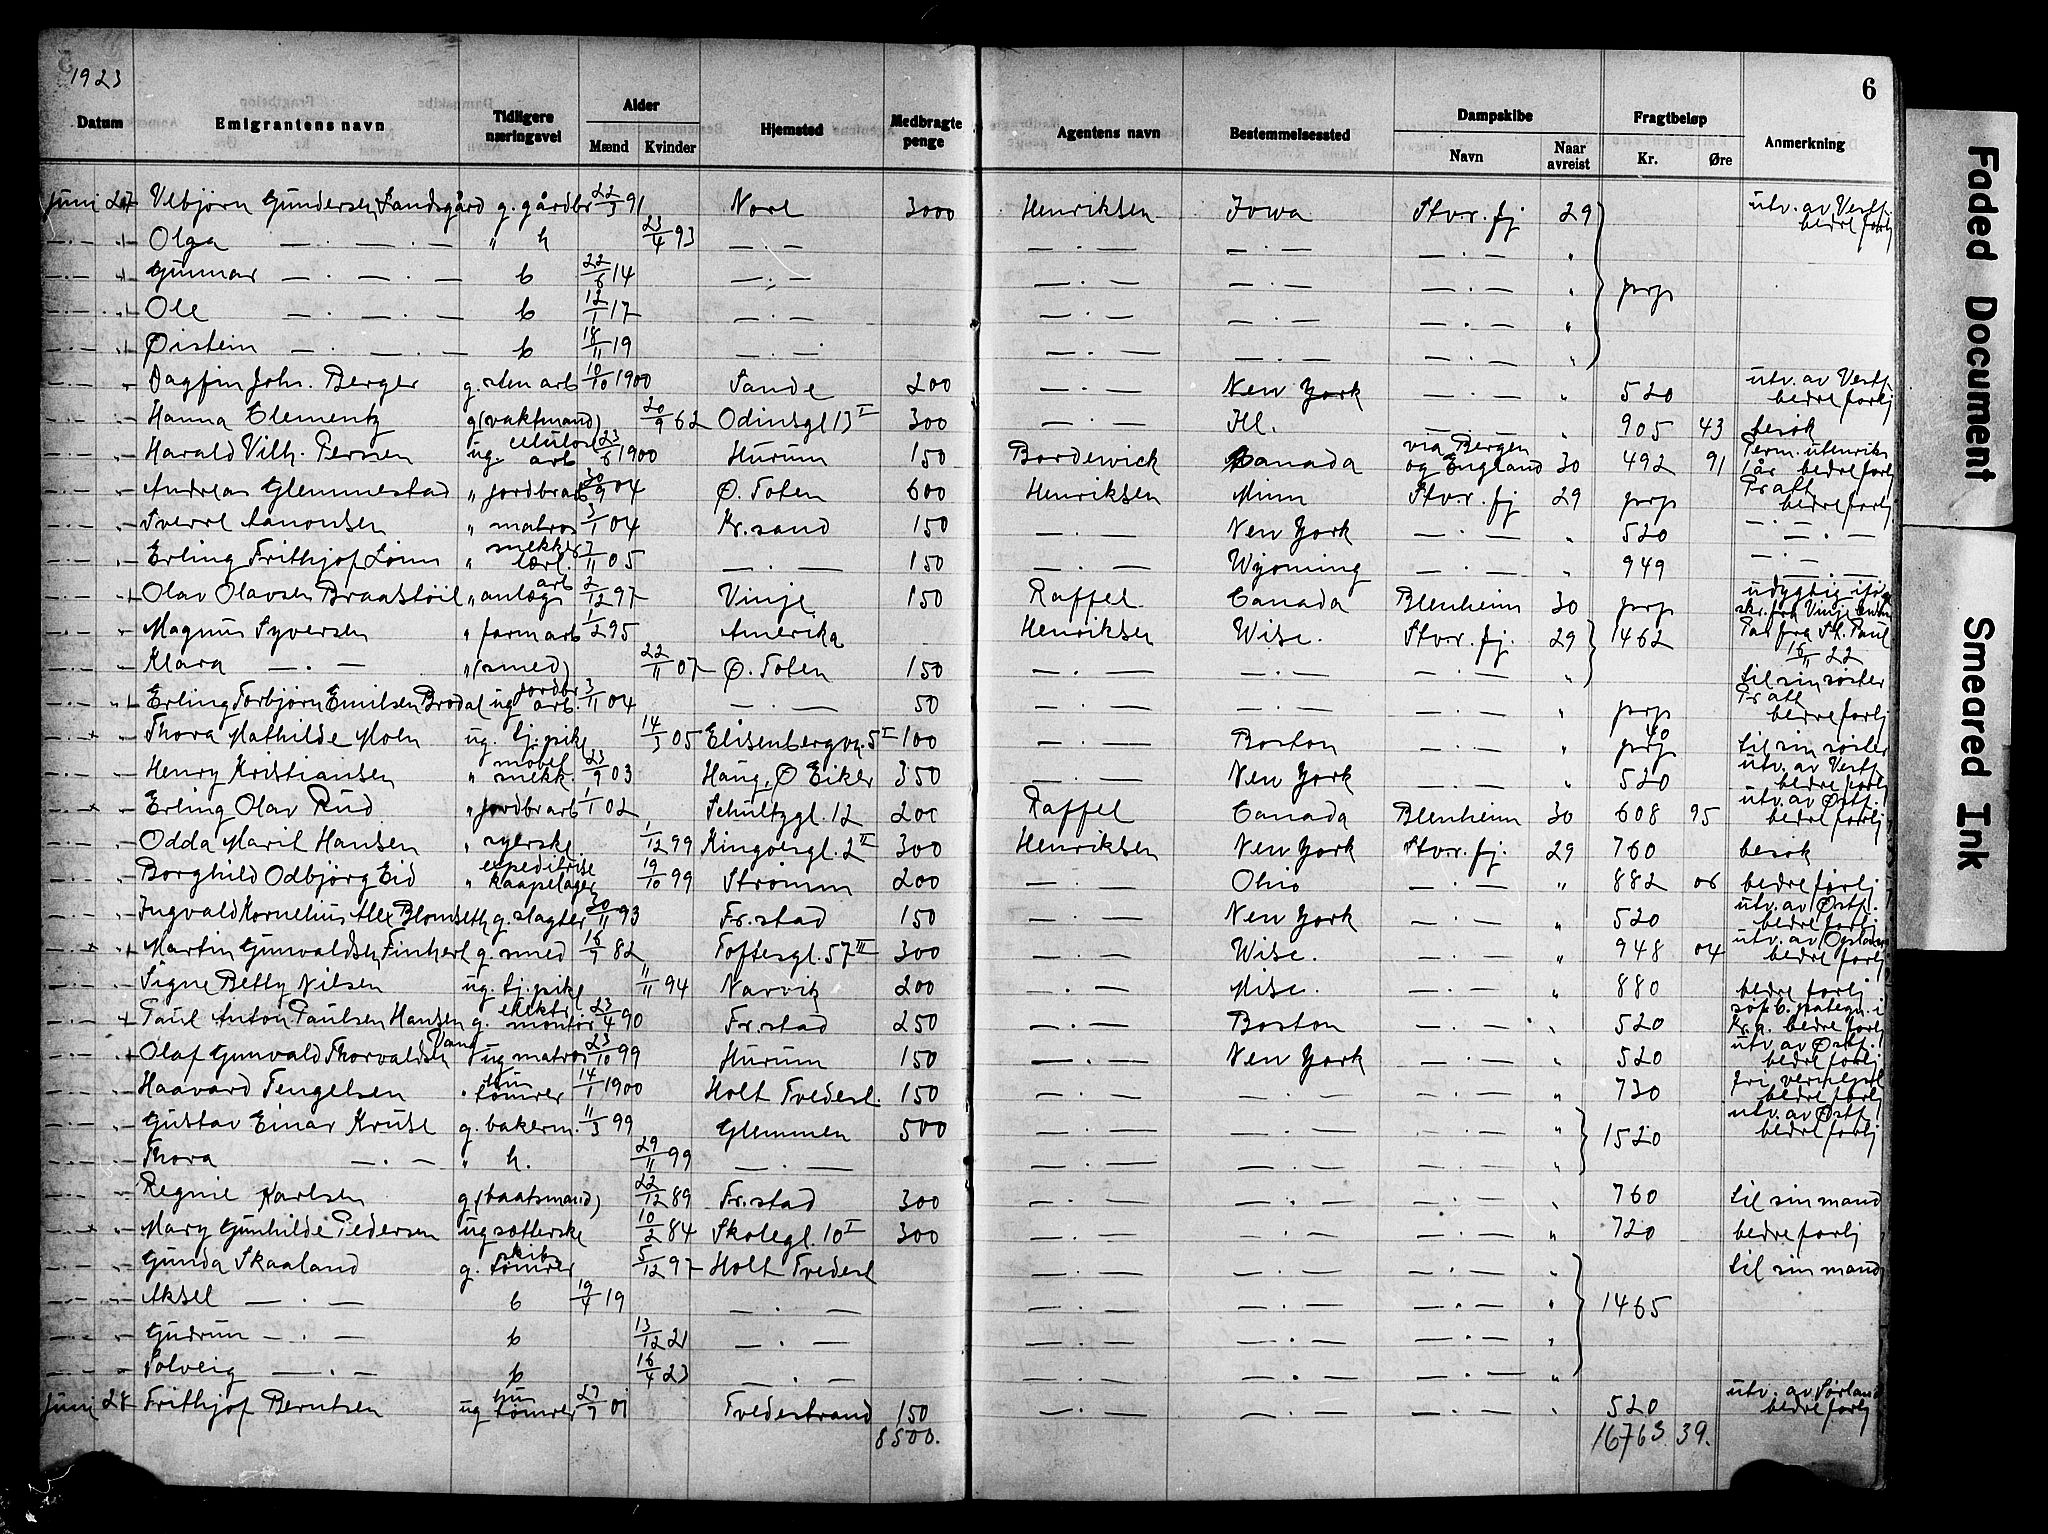 1923
6
Datum Emigrantens navn Tidligere næringsvei Alder Mænd Kvinder Hjemsted Medbragte penge Agentens navn Bestemmelsessted Dampskibe Navn Naar avreist Fragtbeløp Kr. Øre Anmerkning
Juni 27 Vebjörn Gundersen Landsgård g. gårdbr 22/3 91 Nore 3000 Henriksen Iowa Stvr. fj 29 utv. av Vestf. bedre forhj
—.— " Olga —.—.— " h 23/4 93 —.— —.— —.— —.— "
—.— " Gunnar —.—.— b 22/6 14 —.— —.— —.— —.— " prp
—.— " Ole —.—.— b 12/1 17 —.— —.— —.— —.— "
—.— " Øistein —.—.— b 18/11 19 —.— —.— —.— —.— "
—.— " Dagfin Joh. Berger g. sten arb 10/10 1900 Sande 200 —.— New York —.— " 520 utv. av Vestf. bedre forhj
—.— " Hanna Clementz g (vaktmand) 20/9 62 Odinsgt 13 I 300 —.— Ill. —.— " 905 43 besök
—.— " Harald Vilh. Persen ug. celulose arb 23/6 1900 Hurum 150 Bordewick Canada via Bergen og England 30 492 91 Perm. utenriks 1 år bedre forhj
—.— " Andreas Glemmestad " jordbrarb 30/9 04 Ø. Toten 600 Henriksen Minn Stvr. fj 29 prp Pr att bedre forhj
—.— " Sverre Aanonsen " matros 3/1 04 Kr.sand 150 —.— New York —.— " 520 —.—
—.— " Erling Frithjof Lönn " mekker lærl. 7/11 05 —.— 150 —.— Wyoming —.— " 949 —.—
—.— " Olav Olavsen Braastöil " anlægs arb 2/12 97 Vinje 150 Raffel Canada Blenheim 30 prp udygtig ifölge skr. fra Vinje
—.— " Magnus Syversen " farm arb 1/2 95 Amerika - Henriksen Wisc. Stvr. fj. 29 1462 Pas fra St. Paul 16/11 22
—.— " Klara —.— " (smed) 22/11 07 Ø. Toten 150 —.— —.— —.— " til sin söster
—.— " Erling Torbjörn Emilsen Brodal ug jordbr arb. 3/11 04 —.— 50 —.— —.— —.— " prp Pr att bedre forhj
—.— " Thora Mathilde Moen ug. tj. pike 14/3 05 Elisenbergvn. 5 I 100 —.— Boston —.— " 40 prp til sin söster
—.— " Henry Kristiansen " möbel snekk 23/9 03 Haug, Ø Eiker 350 —.— New York —.— " 520 utv. av Vestf. bedre forhj
—.— " Erling Olav Rud " jordbrarb 1/1 02 Schultzgt. 12 200 Raffel Canada Blenheim 30 608 95 utv. av Østf. bedre forhj
—.— " Odda Marit Hansen " syerske 1/12 99 Kingosgt. 2 II 300 Henriksen New York Stvr. fj. 29 760 besök
—.— " Borghild Odbjörg Eid " expeditrise kaapelager 19/10 99 Strömm 200 —.— Ohio —.— " 882 06 bedre forhj
—.— " Ingvald Kornelius Alex Blomseth g. slagter 30/11 93 Fr.stad 150 —.— New York —.— " 520 utv. av Østf. bedre forhj
—.— " Martin Gunvaldsen Finhert g. smed 16/9 82 Toftesgt. 57 III 300 —.— Wisc. —.— " 948 04 utv. av Opland bedre forhj
—.— " Signe Betty Nilsen ug. tj. pike 11/11 94 Narvik 200 —.— Wisc. —.— " 880 bedre forhj
—.— " Paul Anton Paulsen Hansen g. elektr. montör 23/4 90 Fr.stad 250 —.— Boston —.— " 520 Kr.a. bedre forhj
—.— " Olaf Gunvald Thorvaldsen Dana ug matros 23/10 99 Hurum 150 —.— New York —.— " 520 utv. av Østf. bedre forhj
—.— " Haavard Tengelsen " hus tömrer 14/1 1900 Holt Tvedest. 150 —.— —.— —.— " 730 fri vernepl bedre forhj
—.— " Gustav Einar Kruse g. bakerm. 11/3 99 Glemmen 500 —.— —.— —.— " 1520 utv. av Østf. bedre forhj
—.— " Thora —.— " h. 29/11 99 —.— —.— —.— —.— "
—.— " Regnie Karlsen g (baatsmand) 22/12 89 Fr.stad 300 —.— —.— —.— " 760 til sin mand
—.— " Mary Gunhilde Pedersen ug sætterske 10/2 84 Skolegt. 10 I 300 —.— —.— —.— " 720 bedre forhj
—.— " Gunda Skaaland g. skibs tömrer 5/12 97 Holt Tvedest —.— —.— —.— " til sin mand
—.— " Aksel —.— b 19/4 19 —.— —.— —.— —.— " 1465
—.— " Gudrun —.— b 13/12 21 —.— —.— —.— —.— "
—.— " Solveig —.— b 16/4 23 —.— —.— —.— —.— "
Juni 28 Frithjof Berntsen ug hus tömrer 27/7 01 Tvedestrand 150 —.— —.— —.— " 520 utv. av Sörland bedre forhj
8500. 16763 39.
Faded Document
Smeared Ink